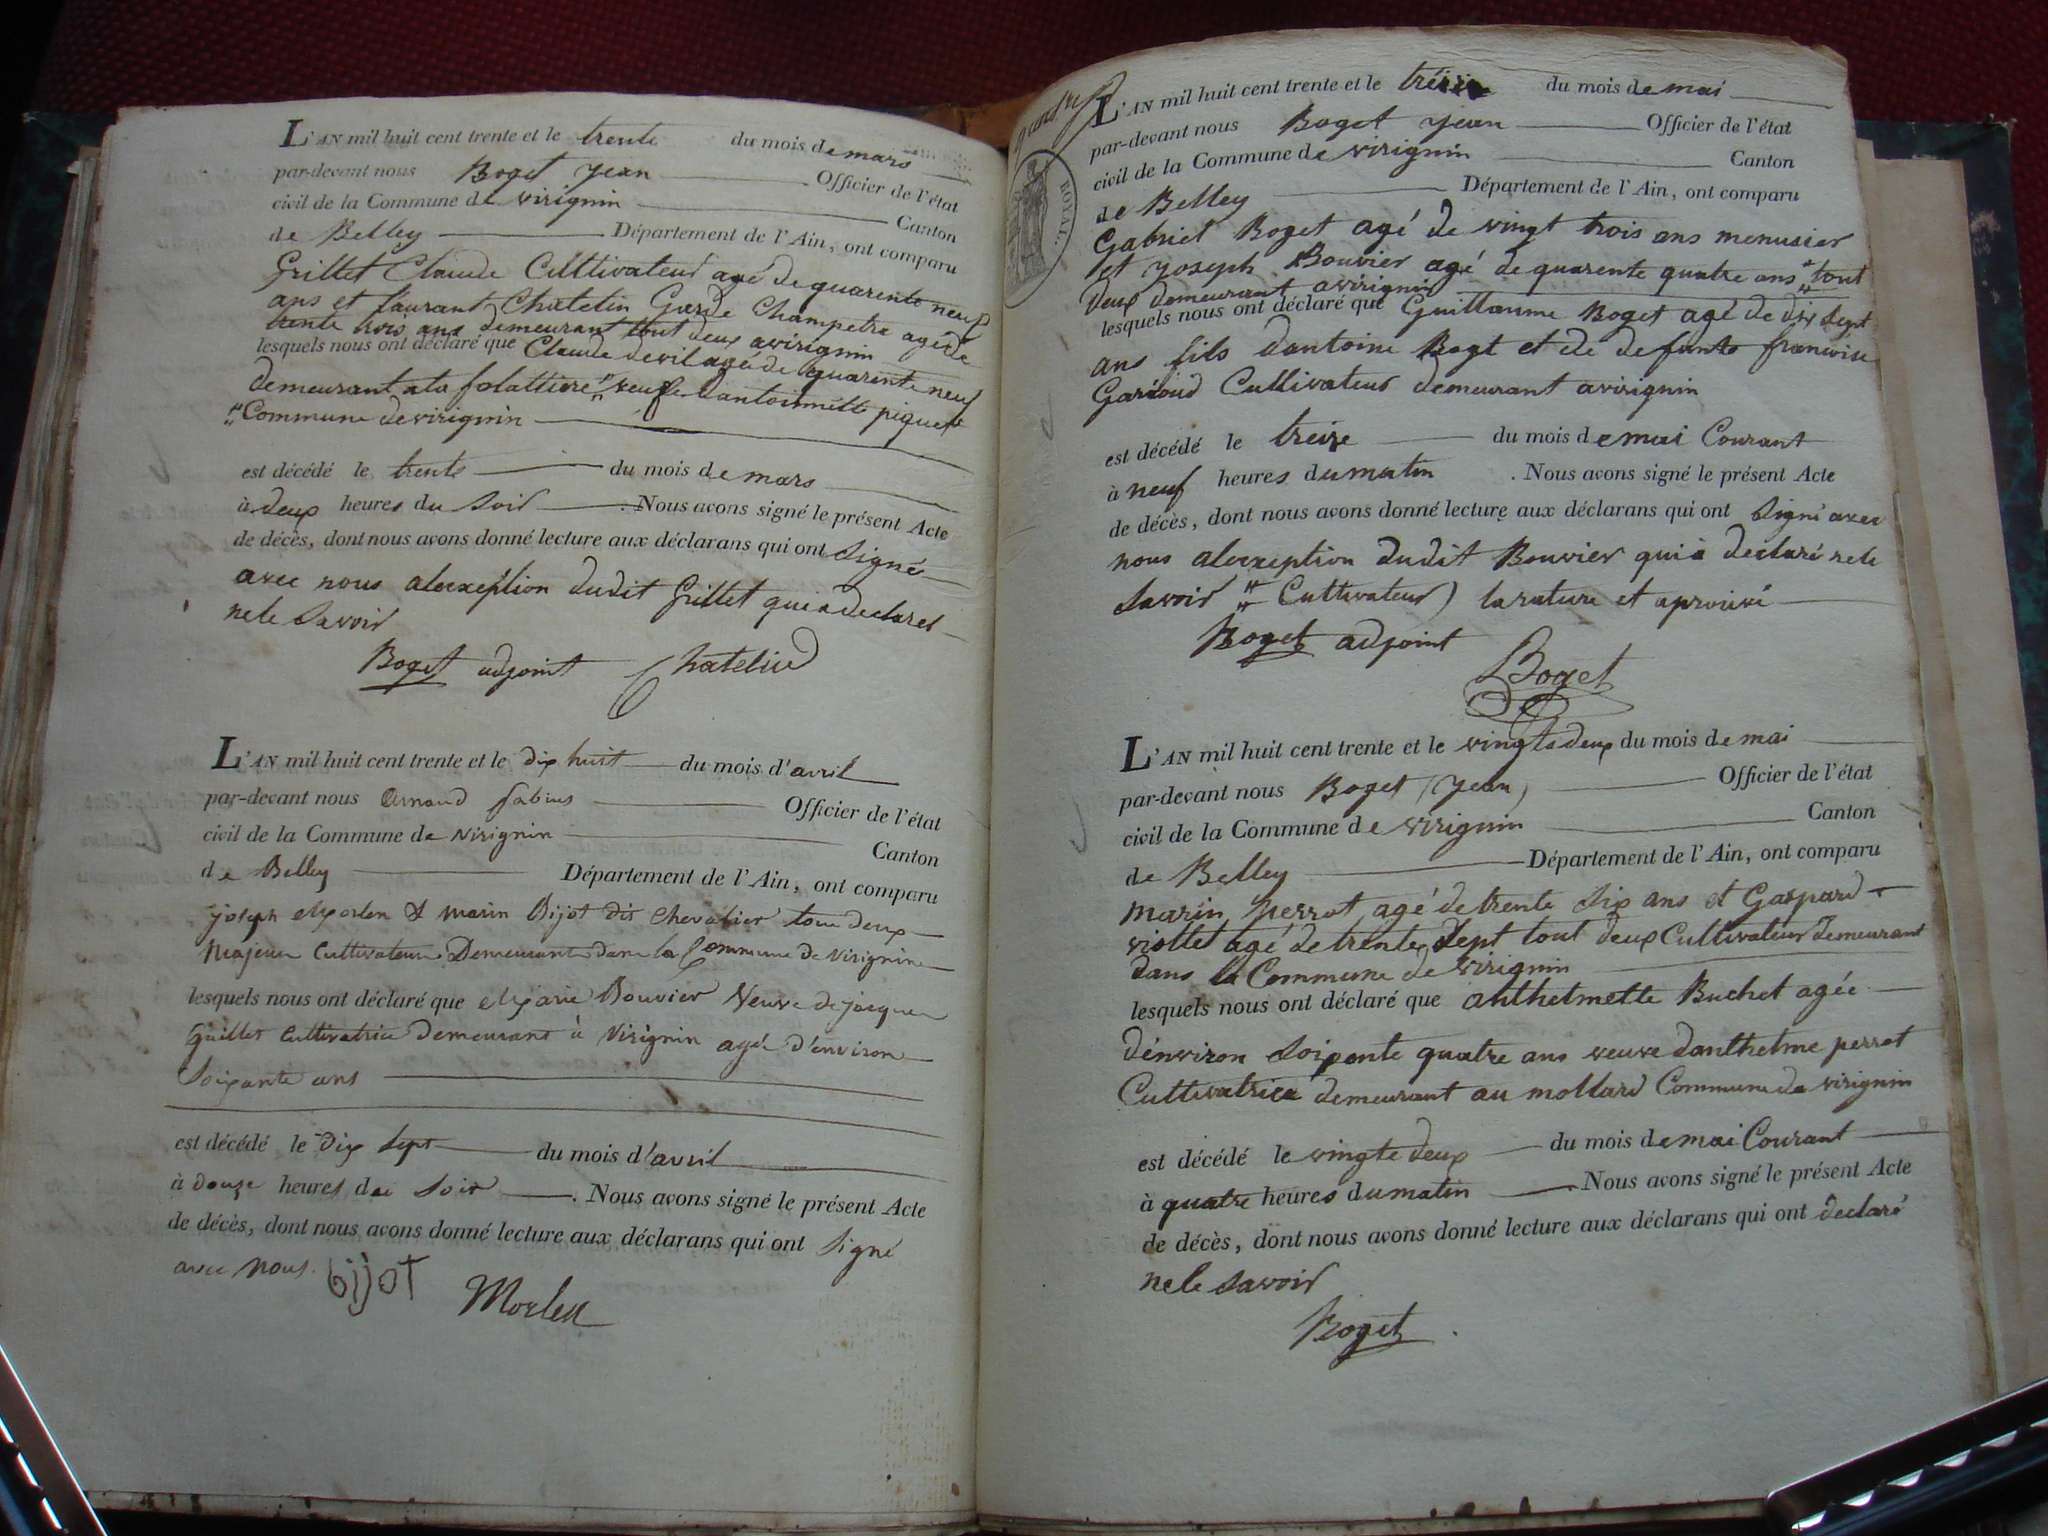 L'AN mil huit cent trente et le trente du mois de mars
par-devant nous Boget jean Officier de l'état
civil de la Commune de virignin Canton
de Belley Département de l'Ain, ont comparu
Grillet Claude Cultivateur agé de quarente neuf
ans et laurant Chatelin Garde Champetre agé de
trente trois ans demeurant tout deux avirignin
lesquels nous ont déclaré que Claude devil agé de quarente neuf
demeurant ala folattiere " veuf dantoinnette piquet
" Commune de virignin
est décédé le trente du mois de mars
à deux heures du soir . Nous avons signé le présent Acte
de décès, dont nous avons donné lecture aux déclarans qui ont signé
avec nous alexception dudit Grillet qui a declaret
ne le savoir
Boget adjoint Chatelin
L'AN mil huit cent trente et le dix huit du mois d'avril
par-devant nous Arnaud fabius Officier de l'état
civil de la Commune de Virignin Canton
de Belley Département de l'Ain, ont comparu
joseph Morlen & marin Bijot dit chevalier tous deux
Majeurs Cultivateurs Demeurant dans la Commune de Virignin
lesquels nous ont déclaré que Marie Bouvier Veuve de jacques
Guillet Cultivatrice demeurant à Virignin agée d'environ
soixante ans
est décédé le dix sept du mois d'avril
à douze heures du soir . Nous avons signé le présent Acte
de décès, dont nous avons donné lecture aux déclarans qui ont signé
avec nous. bijot Morlen
ROYAL.
L'AN mil huit cent trente et le du mois de mai
par-devant nous Boget jean Officier de l'état
civil de la Commune de virignin Canton
de Belley Département de l'Ain, ont comparu
Gabriel Boget agé de vingt trois ans menusier
et joseph Bouvier agé de quarente quatre ans " tout
deux demeurant avirignin
lesquels nous ont déclaré que Guillaume Boget agé de dix sept
ans fils dantoine Bogt et de defunte francoise
Garioud Cultivateur demeurant avirignin
est décédé le treize du mois de mai Courant
à neuf heures du matin . Nous avons signé le présent Acte
de décès, dont nous avons donné lecture aux déclarans qui ont signé avec
nous alexception dudit Bouvier qui à declaré ne le
savoir " Cultivateur) larature et aprouvé
Boget adjoint
Boget
L'AN mil huit cent trente et le vingte deux du mois de mai
par-devant nous Boget (jean) Officier de l'état
civil de la Commune de virignin Canton
de Belley Département de l'Ain, ont comparu
marin perrot agé de trente six ans et Gaspard
viollet agé de trente sept tout deux Cultivateur demeurant
dans la Commune de virignin
lesquels nous ont déclaré que anthelmette Buchet agée
dénviron soixente quatre ans veuve danthelme perrot
Cultivatrice demeurant au mollard Commune de virignin
est décédé le vingte deux du mois de mai Courant
à quatre heures du matin . Nous avons signé le présent Acte
de décès, dont nous avons donné lecture aux déclarans qui ont declaré
ne le savoir
Boget